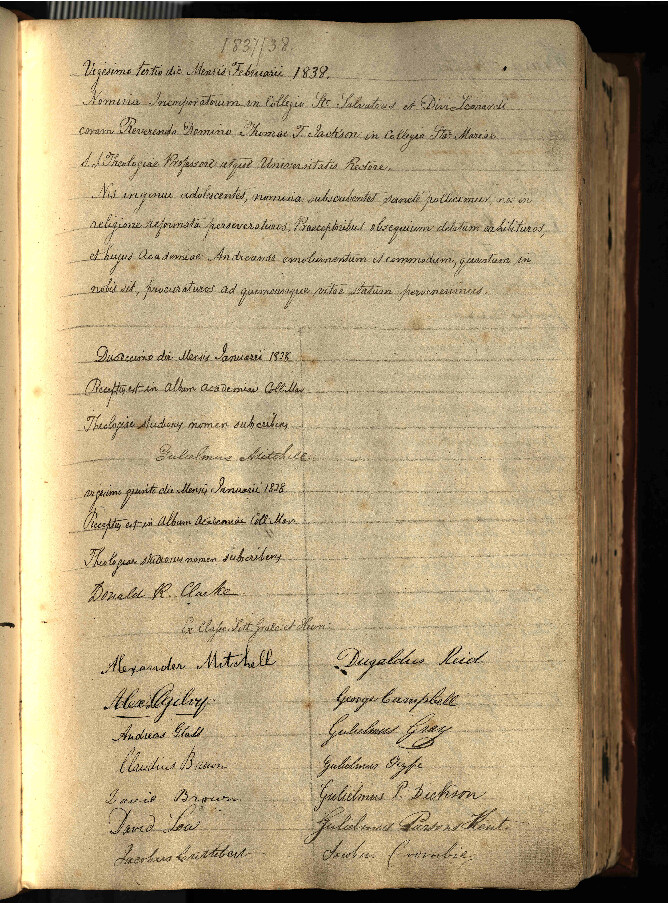 1837/38.
Vigesimo tertio die Mensis Februarii 1838.
Nomina Incorporatorum in Collegio Sti. Salvatoris et Divi Leonardi
coram Reverendo Domino Thomae T. Jackson in Collegio Stae. Mariae
S.S. Theologiae Professore atque Universitatis Rectore.
Nos ingenui adolescentes, nomina subscribentes sanctè pollicemur, nos in
religione reformatâ perseveraturos, Praeceptoribus obsequium debitum exhibituros,
et hujus Academiae Andreanae emolumentum et commodum, quantum in
nobis sit, procuraturos ad quemcunque vitae statum pervenerimus.
Duodecimo die Mensis Januarii 1838
Receptus est in Album Academiae Coll. Mar
Theologiae studiosus nomen subscribens
Gulielmus Mitchell.
vigesimo quinto die Mensis Januarii 1838
Receptus est in Album Academiae Coll. Mar
Theologiae studiosus nomen subscribens
Donald R. Clarke
Ex Classe Litt. Graec. et Hum.
Alexander Mitchell Dugaldus Reid
Alex. Ogilvy George Campbell
Andreas Gulielmus Gray
Claudius Brown Gulielmus Fyfe
David Brown Gulielmus P. Dickson
David Low Gulielmus Parsons
Jacobus Cuthbert Jacobus Crombie.